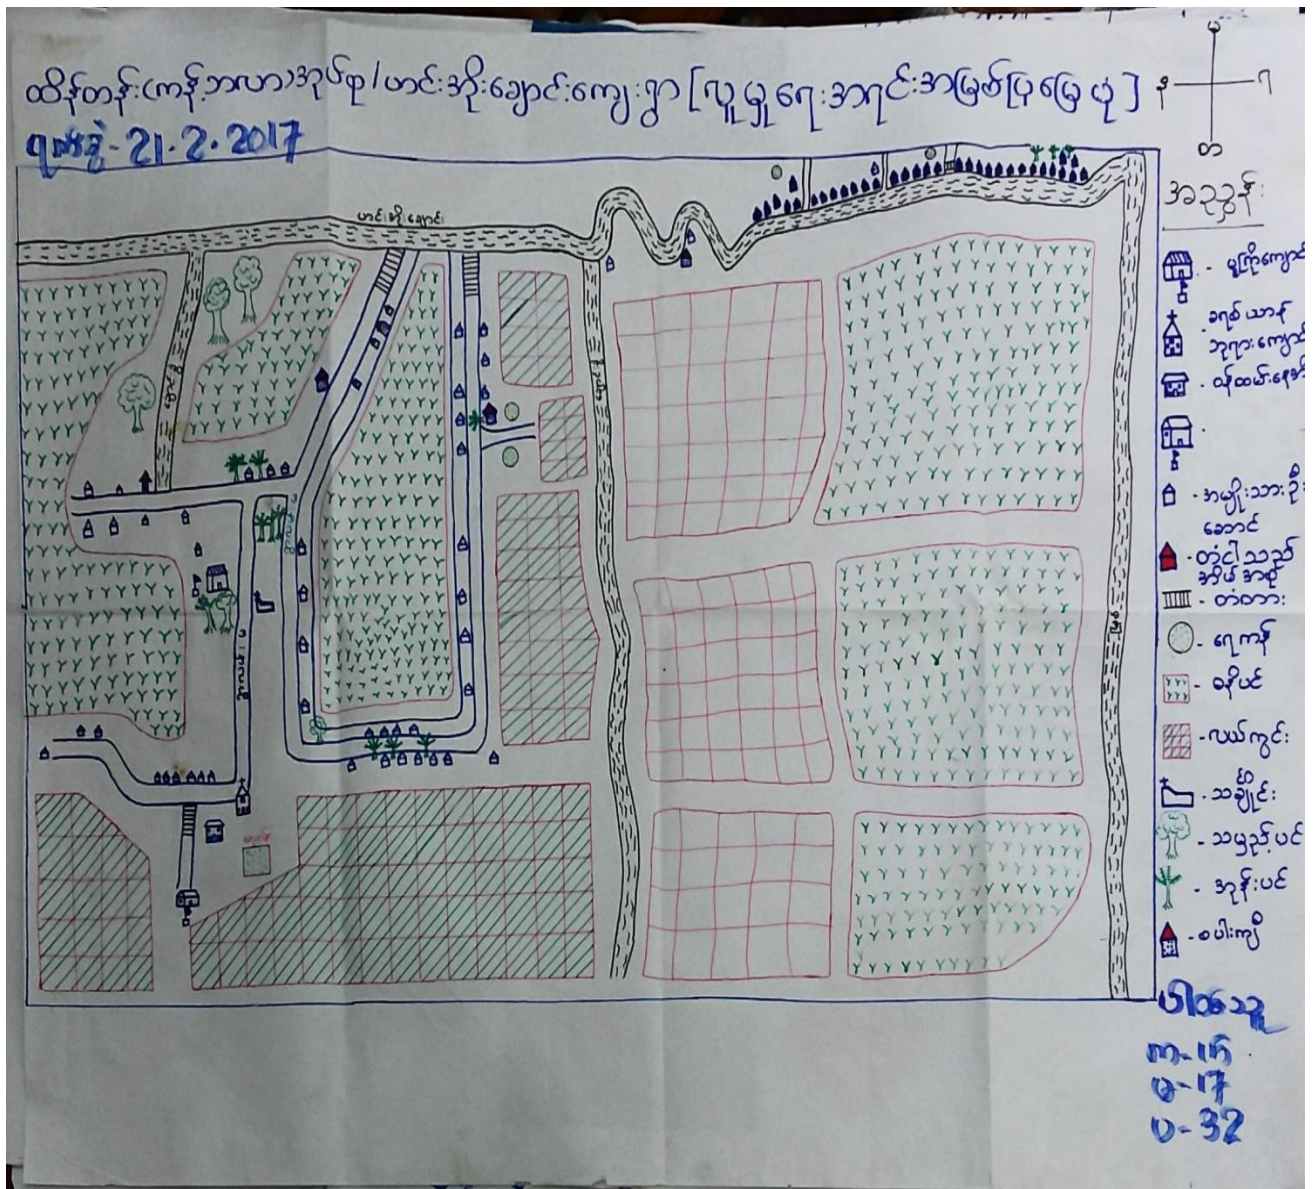 ထိန်တန်း(ကန့်ဘလာ)အုပ်စု/ဟင်းအိုးချောင်းကျေးရွာ [လူမှုရေးအရင်းအမြစ်ပြမြေပုံ]
ရက်စွဲ - 21.2.2017
မ
န
ရ
တ
အညွှန်း
ဟင်းအိုးချောင်း
- မူကြိုကျောင်း
- ခရစ်ယာန်
ဘုရားကျောင်း
- ဝန်ထမ်းနေအိမ်
-
- အမျိုးသားဦး
ဆောင်
- တံငါသည်
အိမ်အစု
- တံတား
- ရေကန်
- ဓနိပင်
- လယ်ကွင်း
- သင်္ချိုင်း
- သမ္ဗည့်ပင်
- အုန်းပင်
- စပါးကျီ
မြစ်
ပါဝင်သူ
က - 15
မ - 17
ပ - 32